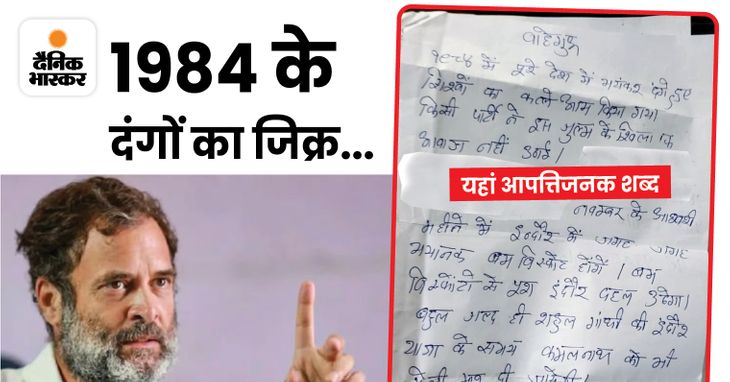 दैनिक
भास्कर
1984 के
दंगों का जिक्र...
वाहेगुरु
१९८४ में पूरे देश में भयंकर दंगे हुए
सिखों का कत्ले आम किया गया
किसी पार्टी ने इस जुल्म के खिलाफ
आवाज नहीं उठाई।
यहां आपत्तिजनक शब्द
नवम्बर के आखरी
महीने में इन्दौर में जगह जगह
भयानक बम विस्फोट होंगे। बम
विस्फोटों से पूरा इंदौर दहल उठेगा।
बहुत जल्द ही राहुल गांधी की इंदौर
यात्रा के समय कमलनाथ को भी